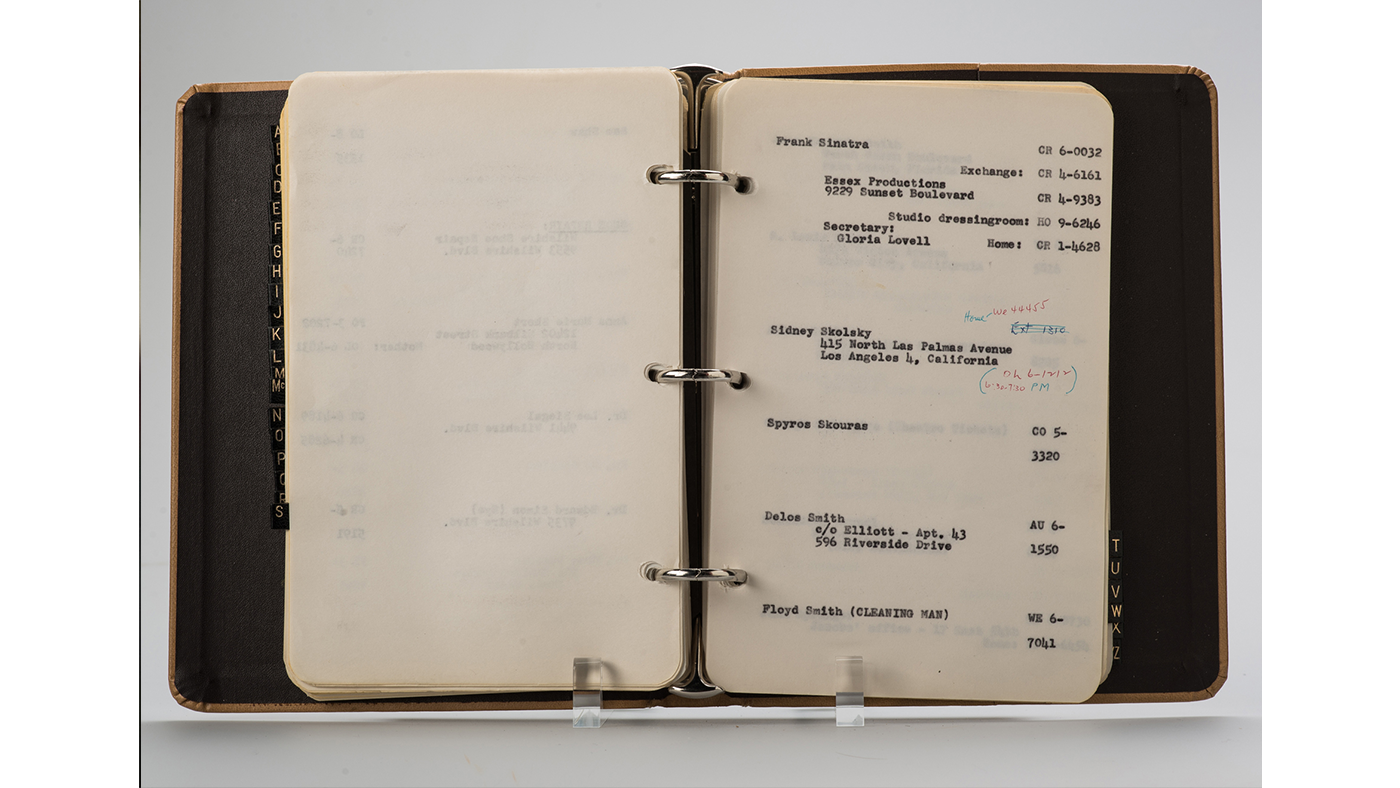 A
B
C
D
E
F
G
H
I
J
K
L
M
Mc
N
O
P
Q
R
S
Frank Sinatra CR 6-0032
Exchange: CR 4-6161
Essex Productions
9229 Sunset Boulevard CR 4-9383
Studio dressingroom: HO 9-6246
Secretary:
Gloria Lovell Home: CR 1-4628
Home We 44455
Ext 1310
Sidney Skolsky
415 North Las Palmas Avenue
Los Angeles 4, California
(Oh 6-1212
6:30-7:30 PM)
Spyros Skouras CO 5-
3320
Delos Smith AU 6-
c/o Elliott - Apt. 43
596 Riverside Drive 1550
Floyd Smith (CLEANING MAN) WE 6-
7041
T
U
V
W
X
Z